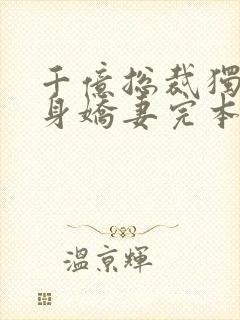 千億総裁獨
身嬌妻完本
溫京輝